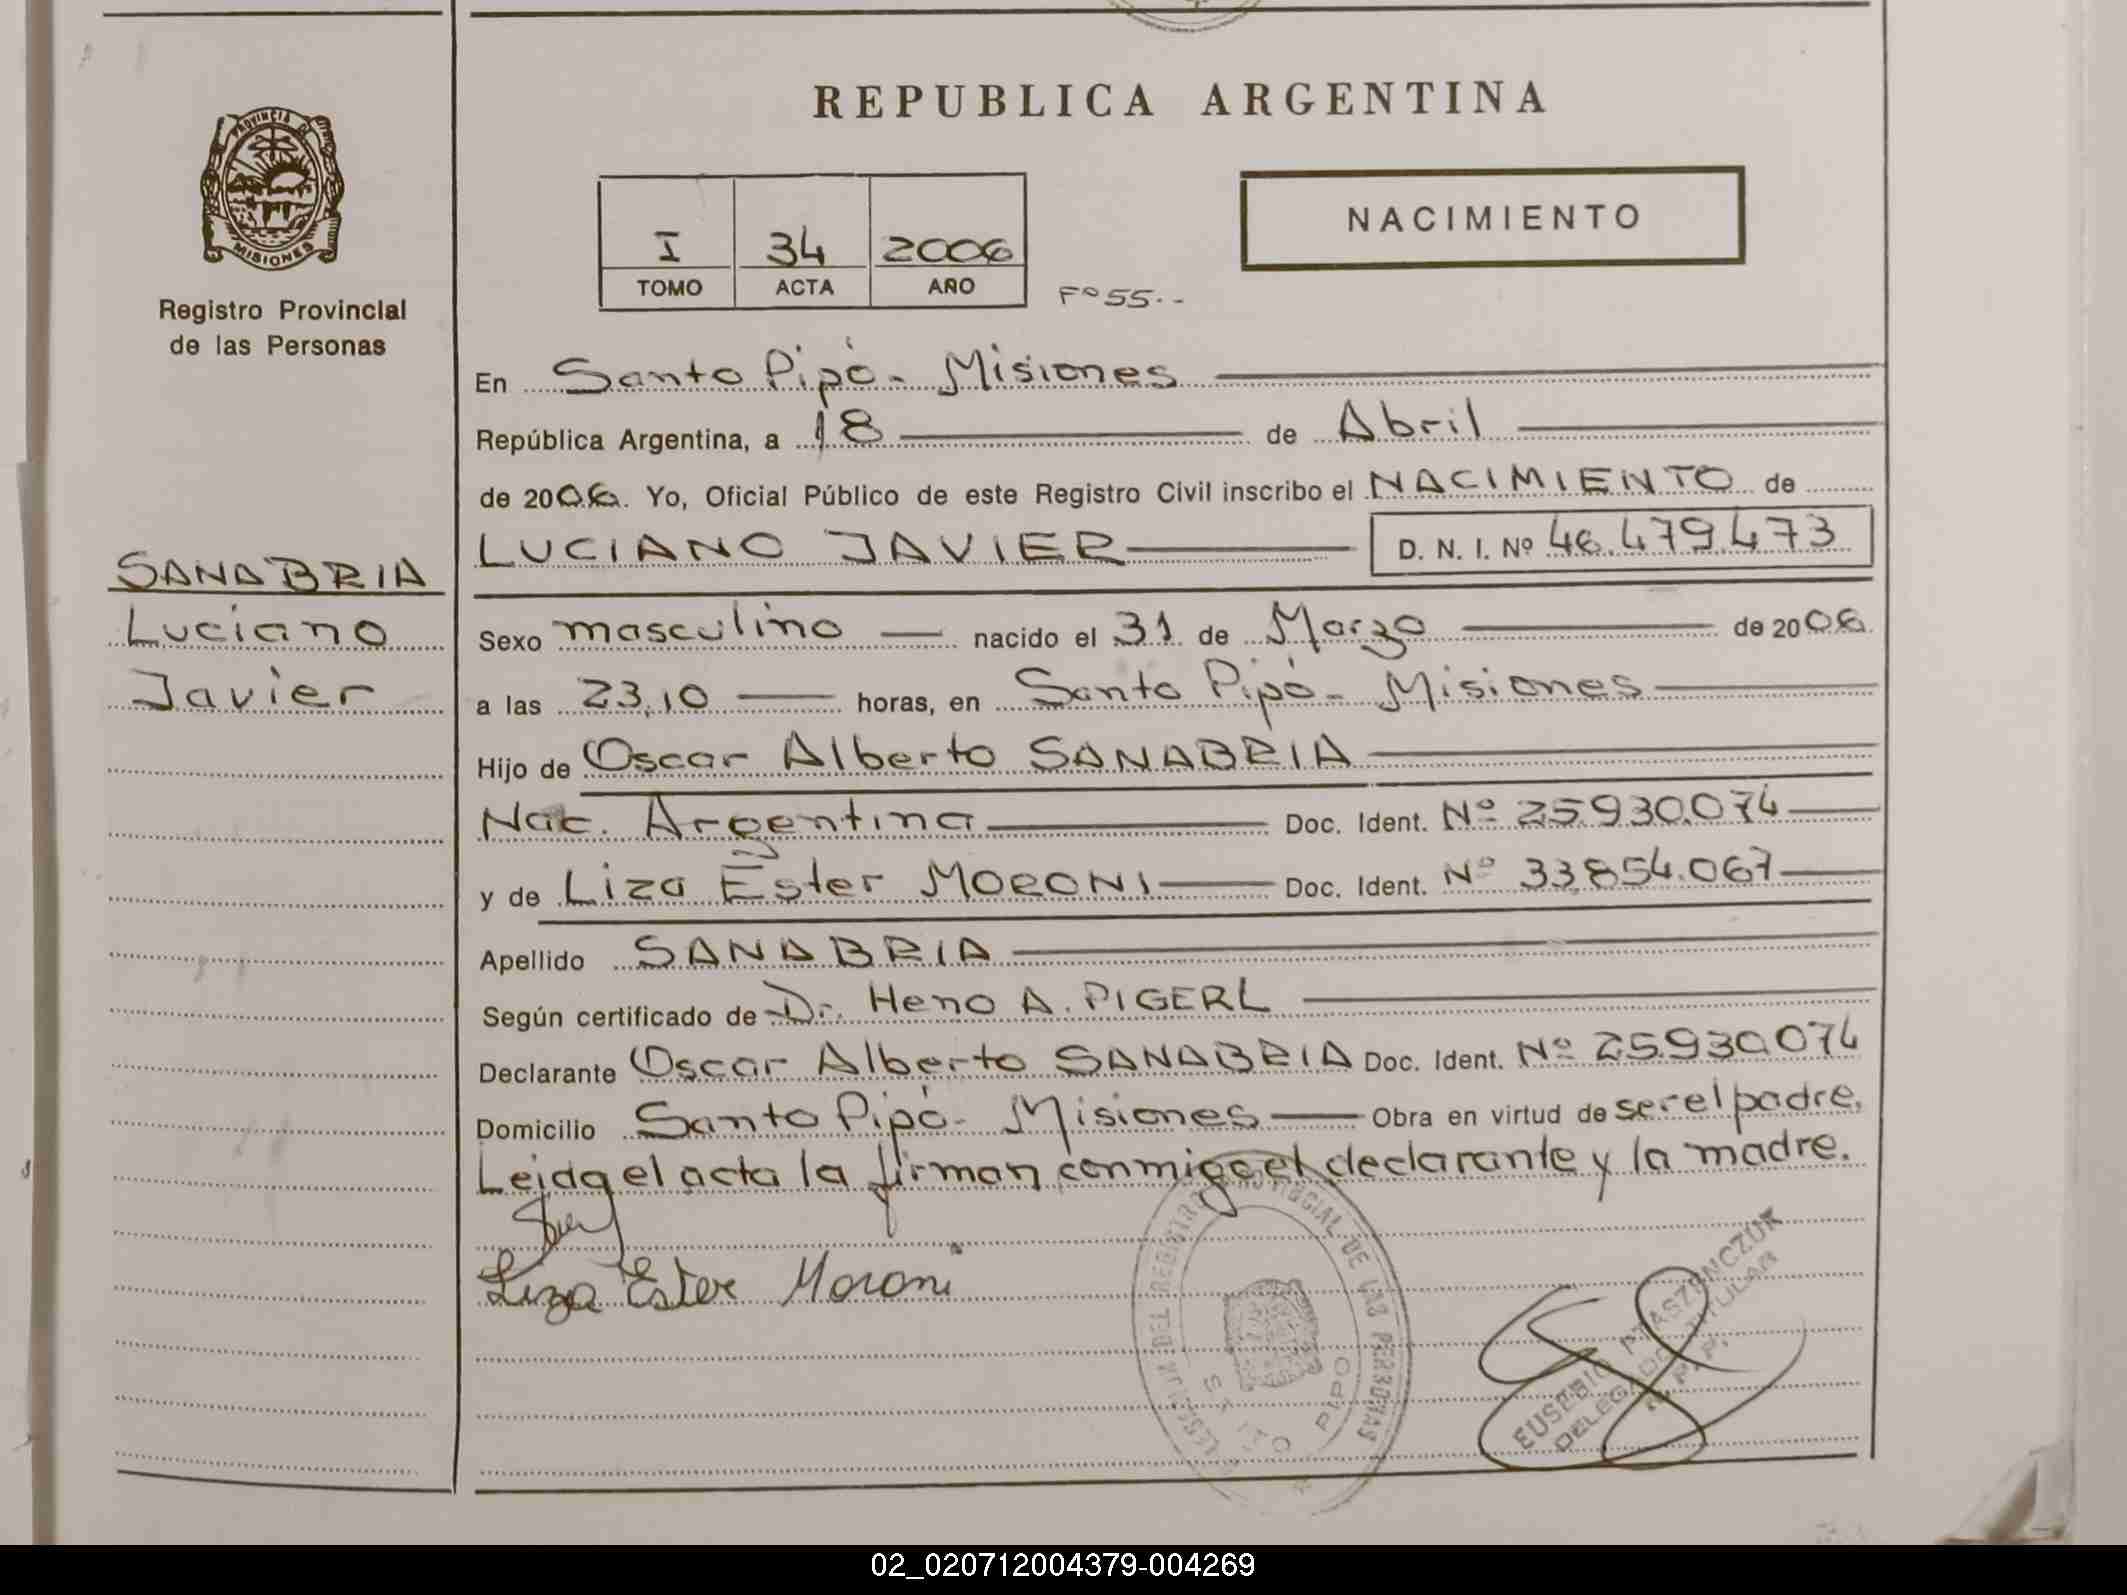 REPUBLICA ARGENTINA
PROVINCIA DE
MISIONES
Registro Provincial
de las Personas
I 34 2006
TOMO ACTA AÑO
Fº 55.-
NACIMIENTO
En Santo Pipó - Misiones
República Argentina, a 18 de Abril
de 2006. Yo, Oficial Público de este Registro Civil inscribo el NACIMIENTO de
LUCIANO JAVIER D. N. I. Nº 46.479.473
SANABRIA
Luciano
Javier
Sexo masculino nacido el 31 de Marzo de 2006
a las 23,10 horas, en Santo Pipó - Misiones
Hijo de Oscar Alberto SANABRIA
Nac. Argentina Doc. Ident. Nº 25.930.074
y de Liza Ester MORONI Doc. Ident. Nº 33.854.067
Apellido SANABRIA
Según certificado de Dr. Heno A. PIGERL
Declarante Oscar Alberto SANABRIA Doc. Ident. Nº 25.930.074
Domicilio Santo Pipó - Misiones Obra en virtud de ser el padre.
Leida el acta la firman conmigo el declarante y la madre.
Liza Ester Moroni
DEL REGISTRO PROVINCIAL DE LAS PERSONAS
STO PIPO
EUSEBIO PTASZENCZUK
DELEGADO TITULAR
R.P.P.
02_020712004379-004269